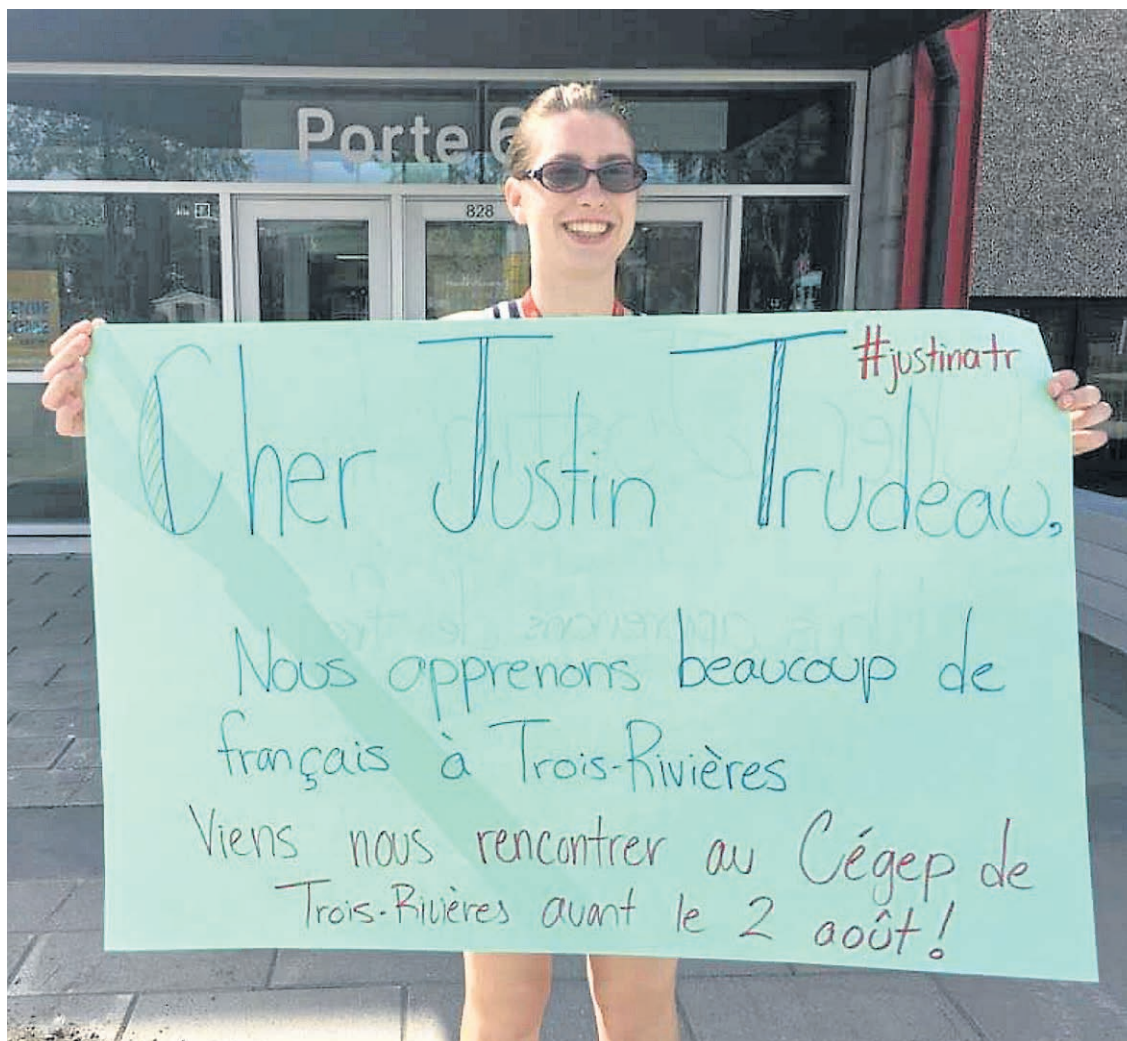 Porte 6
828
#justinatr
Cher Justin Trudeau,
Nous apprenons beaucoup de
français à Trois-Rivières
Viens nous rencontrer au Cégep de
Trois-Rivières avant le 2 août!